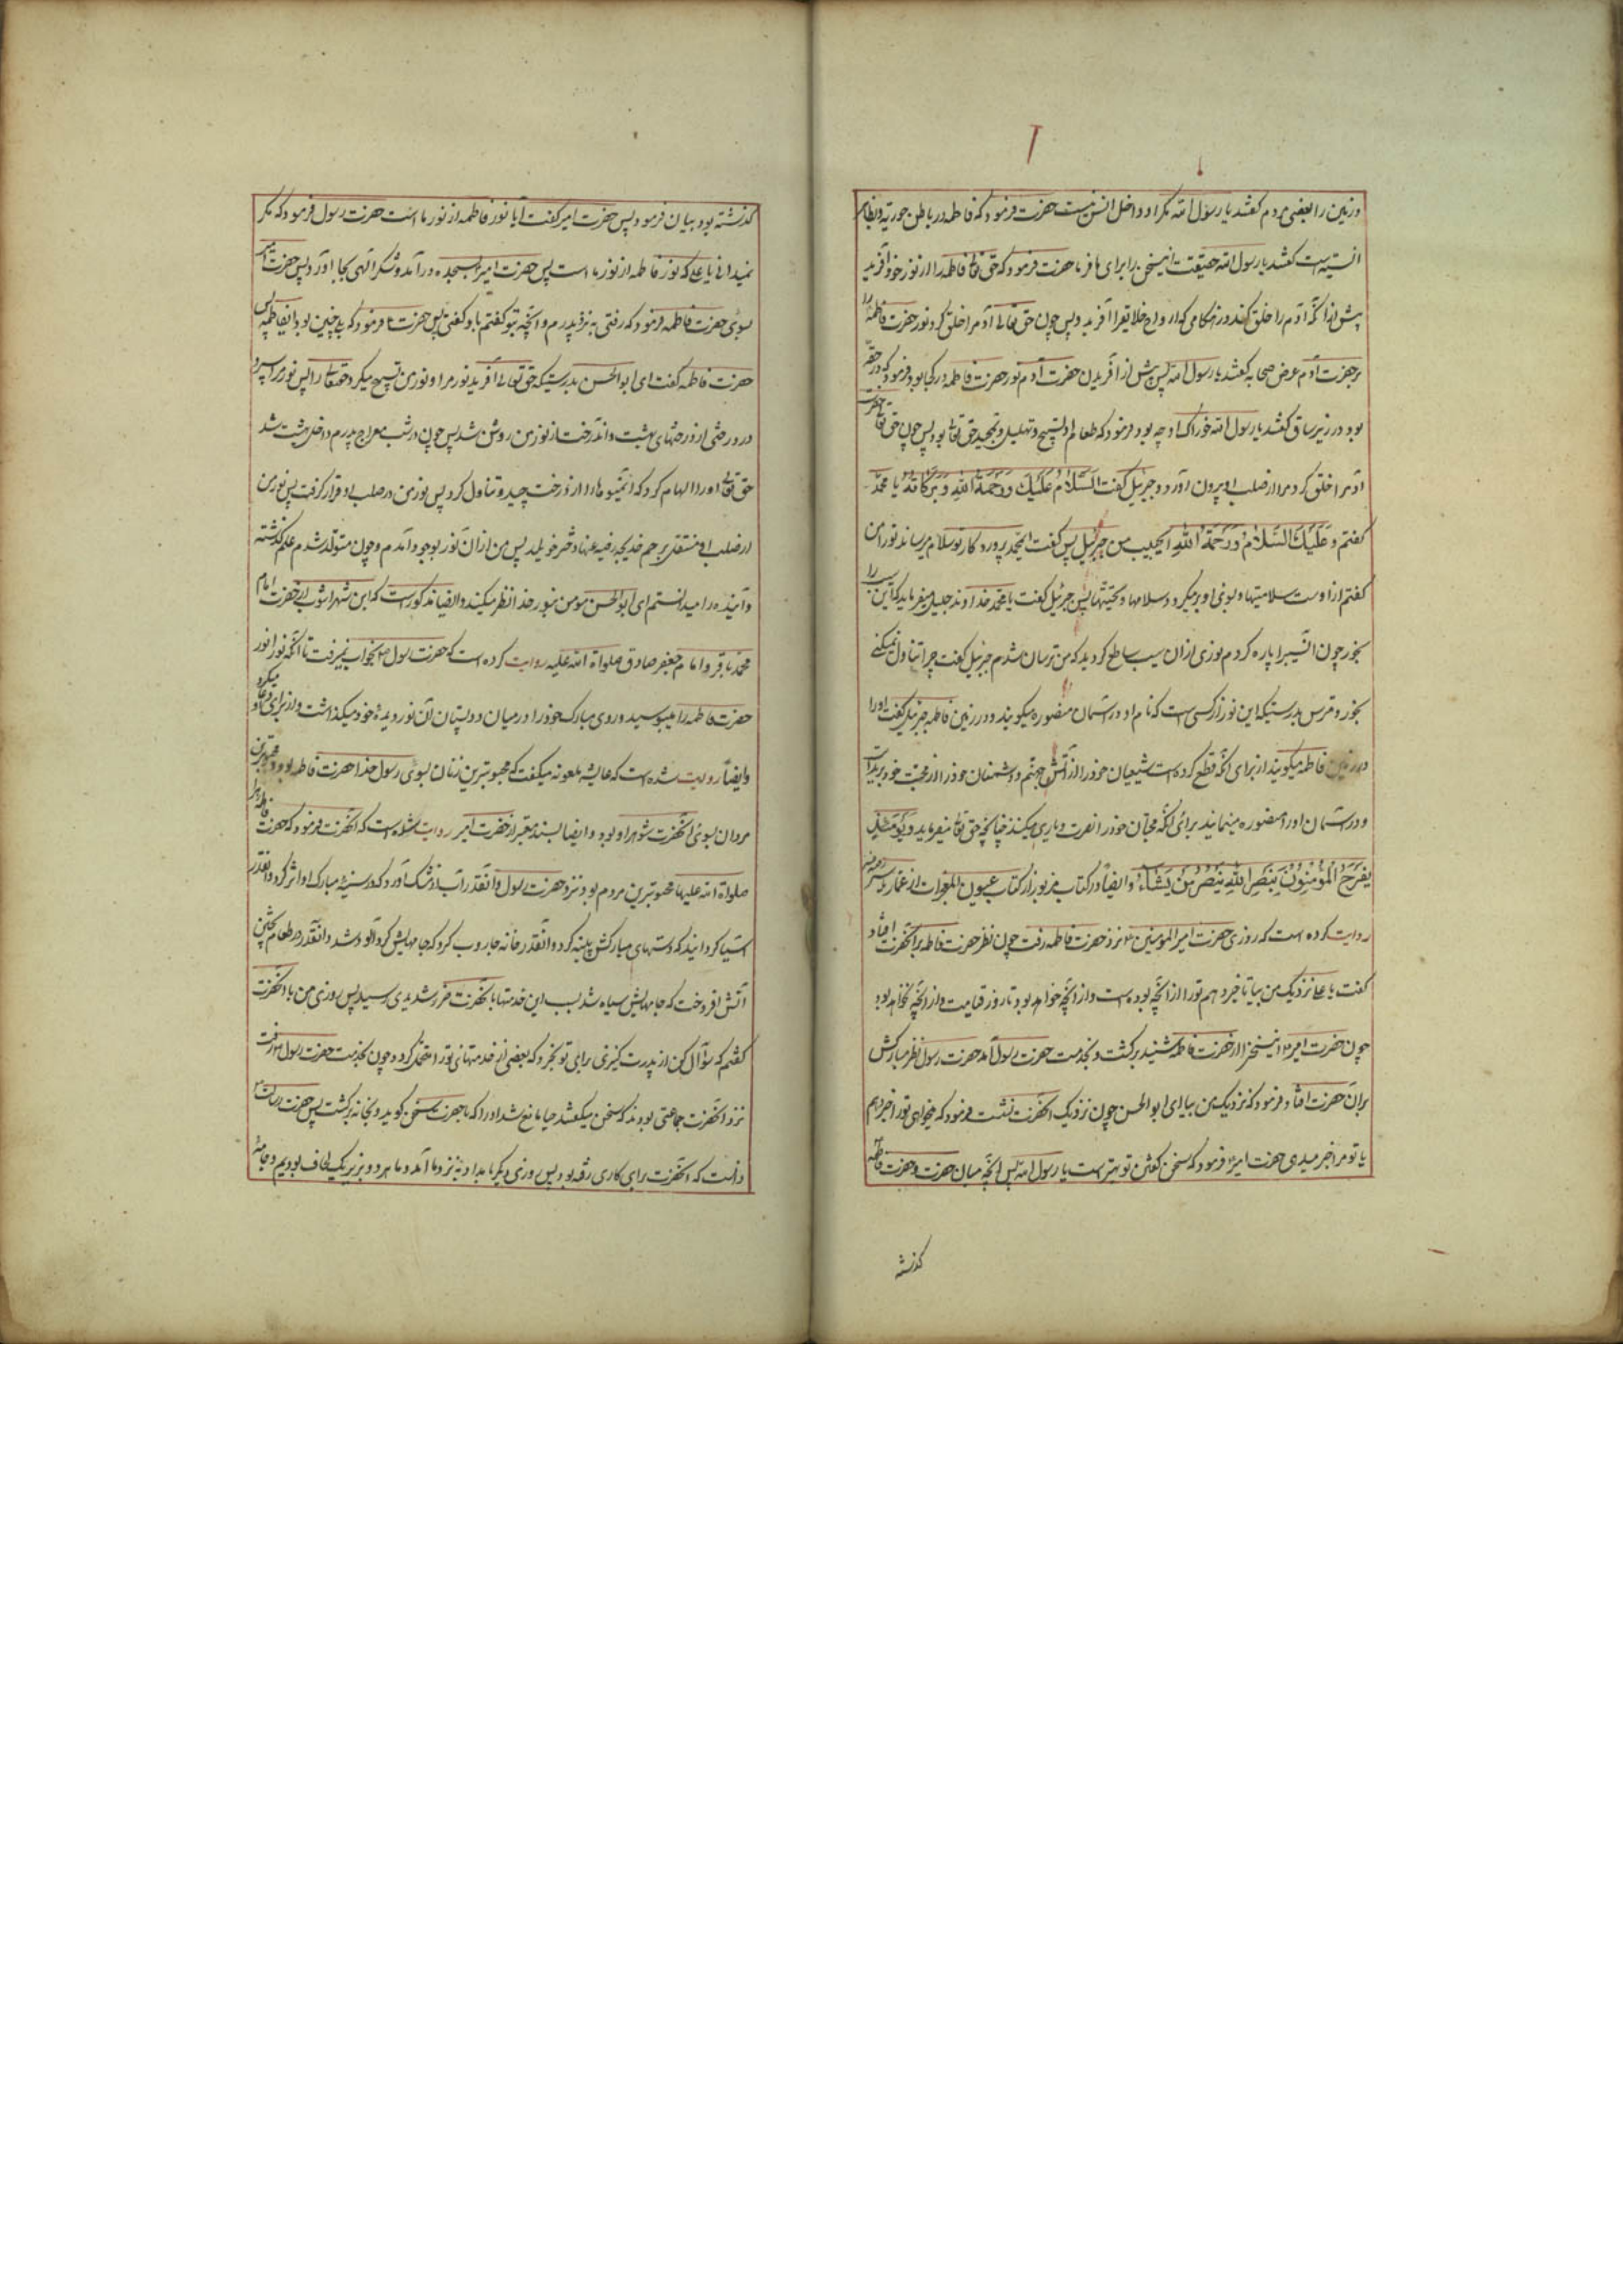 و زمین را بعضی مردم گفتند یا رسول الله مگر او داخل انس نیست حضرت فرمود که فاطمه در باطن حوریه و بظاهر
انسیه است گفتند یا رسول الله حقیقت اینسخن را برای ما فرما حضرت فرمود که حق تعالی فاطمه را از نور خود آفرید
پیش از آنکه آدم را خلق کند در هنگامی که ارواح خلایق را آفرید و پس چون حق تعالی آدم را خلق کرد نور حضرت فاطمه را
بر حضرت آدم عرض صحابه گفتند یا رسول الله پس پیش از آفریدن حضرت آدم نور حضرت فاطمه در کجا بود فرمود که در حقه
بود در زیر ساق گفتند یا رسول الله خوراک او چه بود فرمود که طعام او تسبیح و تهلیل و تمجید حق تعالی بود پس چون حق تعالی حضرت
آدم را خلق کرد مرا از صلب او بیرون آورد و جبرئیل گفت السَّلَامُ عَلَیْكَ وَرَحْمَةُ اللهِ وَبَرَكَاتُهُ یا محمّد
گفتم وَعَلَیْكَ السَّلَامُ وَرَحْمَةُ اللهِ ای حبیب من جبرئیل پس گفت ای محمد پروردگار تو سلام میرساند تو را من
گفتم از اوست سلامتیها و بسوی او برمیگردد سلامها و تحیتها پس جبرئیل گفت یا محمد خداوند جلیل میفرماید که این سیب را
بخور چون آن سیب را پاره کردم نوری از آن سیب ساطع گردید که من ترسان شدم جبرئیل گفت چرا تناول نمیکنی
بخور و مترس بدرستیکه این نور از کسی است که نام او در آسمان منصوره میگویند و در زمین فاطمه جبرئیل گفت او را
در زمین فاطمه میگویند از برای آنکه قطع کرده است شیعیان خود را از آتش جهنم و دشمنان خود را از محبت خود بریده است
و در آسمان او را منصوره مینمایند برای آنکه محبّان خود را نصرت و یاری میکند چنانچه حق تعالی میفرماید وَیَوْمَئِذٍ
یَفْرَحُ الْمُؤْمِنُونَ بِنَصْرِ اللهِ یَنْصُرُ مَنْ یَشَاءُ و ایضاً در کتاب مزبور از کتاب عیون المعجزات از عمار یاسر
روایت کرده است که روزی حضرت امیر المومنین ع نزد حضرت فاطمه رفت چون نظر حضرت فاطمه بر آنحضرت افتاد
گفت یا علی نزدیک من بیا تا خبر دهم تو را از آنچه بوده است و از آنچه خواهد بود تا روز قیامت و از آنچه نخواهد بود
چون حضرت امیر ع اینسخن را از حضرت فاطمه شنید برگشت و بخدمت حضرت رسول آمد حضرت رسول نظر مبارکش
بر آن حضرت افتاد و فرمود که نزدیک من بیا ای ابو الحسن چون نزدیک آنحضرت نشست فرمود که میخواهی تو را خبر دهم
یا تو مرا خبر میدهی حضرت امیر ع فرمود که سخن گفتن تو بهتر است یا رسول الله پس آنچه میان حضرت و حضرت فاطمه
گذشته
گذشته بود بیان فرمود پس حضرت امیر گفت آیا نور فاطمه از نور ما است حضرت رسول فرمود که مگر
نمیدانی یا علی که نور فاطمه از نور ما است پس حضرت امیر بسجده در آمد و شکر الهی بجا آورد پس حضرت امیر
بسوی حضرت فاطمه فرمود که رفتی به نزد پدرم و آنچه بتو گفتم باو گفتی پس حضرت ع فرمود که بلی چنین بود ایفاطمه پس
حضرت فاطمه گفت ای ابو الحسن بدرستیکه حق تعالی آفرید نور مرا و نور من تسبیح میکرد حقتعالی را پس نور را سپرد
در درختی از درختهای بهشت و آندرخت از نور من روشن شد پس چون در شب معراج پدرم داخل بهشت شد
حق تعالی او را الهام کرد که از میوه از آندرخت چید و تناول کرد پس نور من در صلب او قرار گرفت پس نور من
از صلب او منتقل بر حم خدیجه رضیه عنها دختر خویلد پس من از آن نور بوجود آمدم و چون متولد شدم علم گذشته
و آینده را میدانستم ای ابو الحسن مومن بنور خدا نظر میکند و ایضا مذکور است که ابن شهر اشوب از حضرت امام
محمد باقر و امام جعفر صادق صلواة الله علیه روایت کرده است که حضرت رسول ص بخواب نمیرفت تا آنکه نور انور
حضرت فاطمه را میبوسید و روی مبارک خود را در میان دو پستان آن نور دیده خود میگذاشت و از برای او دعا میکرد
مردان بسوی آنحضرت شوهر او بود و ایضا بسند معتبر از حضرت امیر روایت شده است که آنحضرت فرمود که حضرت فاطمه زهرا
صلواة الله علیها محبوبترین مردم بود نزد حضرت رسول و آنقدر آب از مشک آورد که در سینه مبارک او اثر کرد و آنقدر
آسیا گردانید که دستهای مبارکش پینه کرد و آنقدر خانه جاروب کرد که جامهایش گردآلود شد و آنقدر در طعام پختن
آتش افروخت که جامهایش سیاه شد بسبب این خدمتها بآنحضرت ضرر شدیدی رسید پس روزی من با آنحضرت
گفتم که سؤال کن از پدرت کنیزی برای تو بخرد که بعضی از خدمتهای تو را متحمل گردد چون بخدمت حضرت رسول ص رفت
نزد آنحضرت جماعتی بودند که سخن میگفتند حیا مانع شد او را که با حضرت سخن گوید و بخانه برگشت پس حضرت رسالت
دانست که آنحضرت برای کاری رفته بود پس روزی دیگر بامداد به نزد ما آمد و ما هر دو بزیر یک لحاف بودیم و جامهٔ